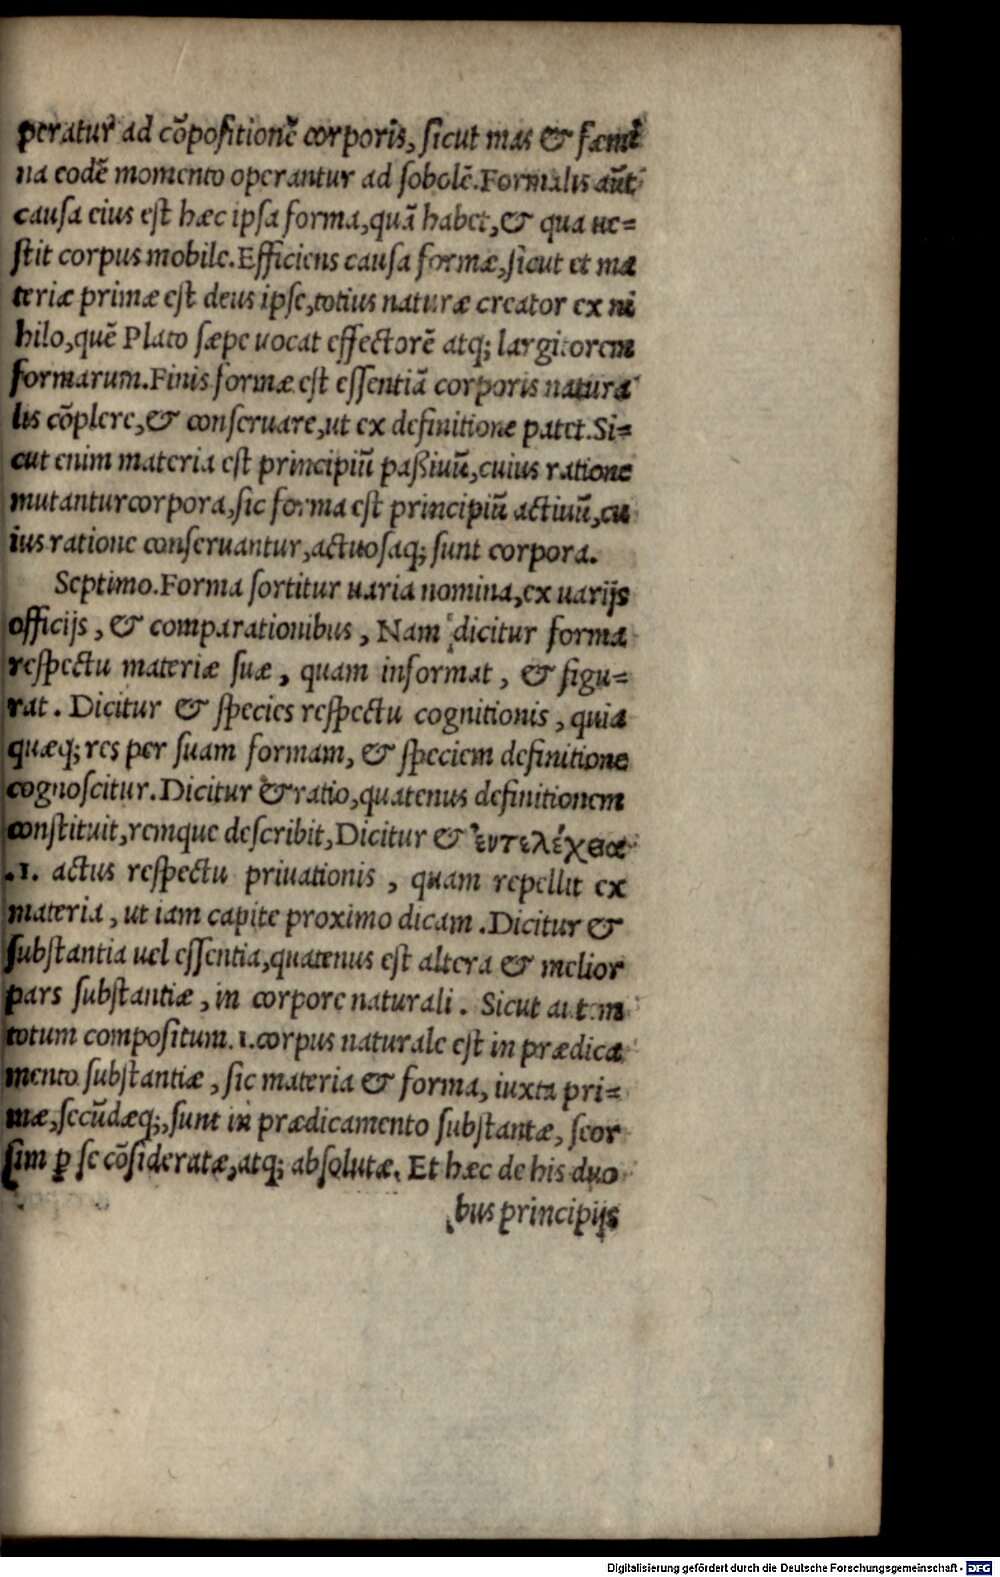 peratur ad cõpositionẽ corporis, ſicut mas & fæmi
na eodẽ momento operantur ad ſobolẽ.Formalis aũt
cauſa eius eſt hæc ipſa forma,quã habet,& qua ue=
ſtit corpus mobile.Efficiens cauſa formæ,ſicut et ma
teriæ primæ eſt deus ipſe,totius naturæ creator ex ni
hilo,quẽ Plato ſæpe uocat effectorẽ atq; largitorem
formarum.Finis formæ eſt eſſentiã corporis natura
lis cõplere,& conſeruare,ut ex definitione patet.Si=
cut enim materia eſt principiũ paßiuũ,cuius ratione
mutantur corpora,ſic forma eſt principiũ actiuũ,cu
ius ratione conſeruantur,actuoſaq; ſunt corpora.
Septimo.Forma ſortitur uaria nomina,ex uarijs
officijs, & comparationibus, Nam dicitur forma
reſpectu materiæ ſuæ, quam informat, & figu=
rat. Dicitur & ſpecies reſpectu cognitionis, quia
quæq; res per ſuam formam, & ſpeciem definitione
cognoſcitur.Dicitur & ratio,quatenus definitionem
conſtituit,remque deſcribit,Dicitur & ἐντελέχεια
.1. actus reſpectu priuationis, quam repellit ex
materia, ut iam capite proximo dicam.Dicitur &
ſubſtantia uel eſſentia,quatenus eſt altera & melior
pars ſubſtantiæ, in corpore naturali. Sicut autem
totum compoſitum.1.corpus naturale eſt in prædica
mento ſubſtantiæ, ſic materia & forma, iuxta pri=
mæ,ſecũdæq;,ſunt in prædicamento ſubſtantæ, ſeor
ſim ꝑ ſe cõſideratæ,atq; abſolutæ. Et hæc de his duo
bus principijs
Digitalisierung gefördert durch die Deutsche Forschungsgemeinschaft - DFG